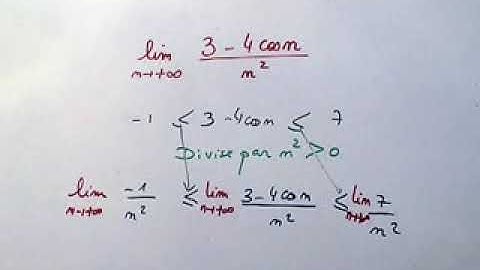 lim n→+∞ (3 - 4 cos n)/n²
-1 ≤ 3 - 4 cos n ≤ 7
Divise par n² > 0
lim n→+∞ -1/n² ≤ lim n→+∞ (3 - 4 cos n)/n² ≤ lim n→+∞ 7/n²